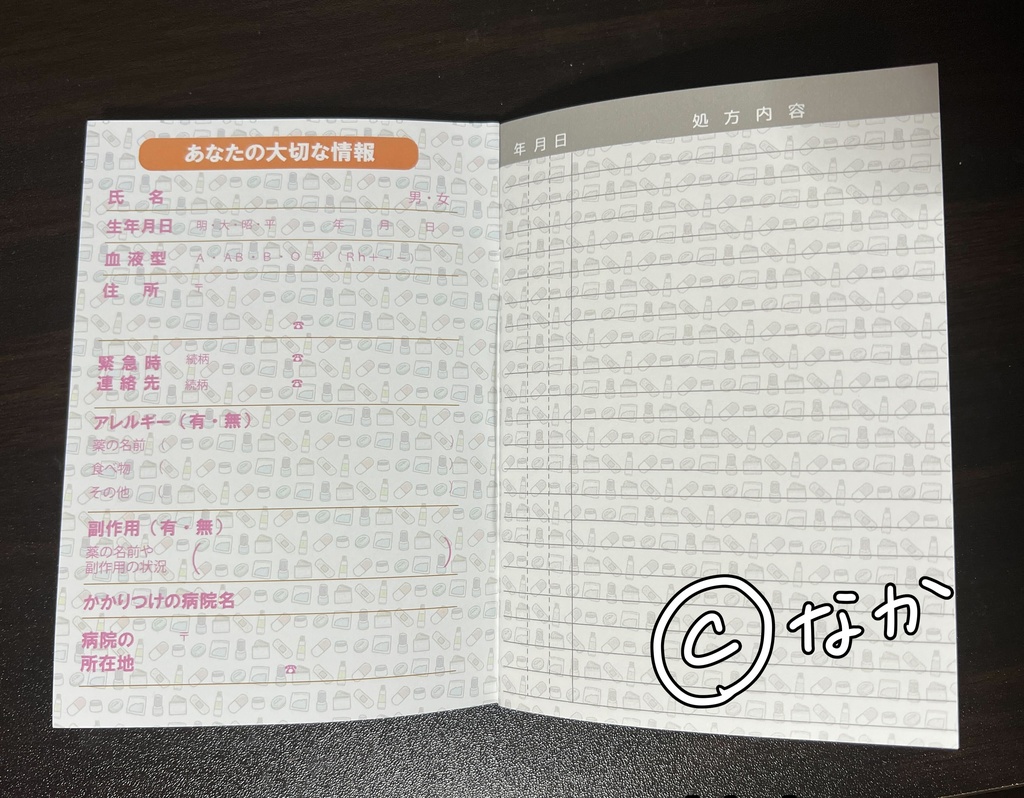 あなたの大切な情報
氏 名 男・女
生年月日 明・大・昭・平 年 月 日
血液型 A・AB・B・O 型 (Rh+・-)
住 所 〒
☎
緊急時 続柄 ☎
連絡先 続柄 ☎
アレルギー(有・無)
薬の名前 ( )
食べ物 ( )
その他 ( )
副作用(有・無)
薬の名前や
副作用の状況 ( )
かかりつけの病院名
病院の 〒
所在地 ☎
年月日 処方内容
©なか